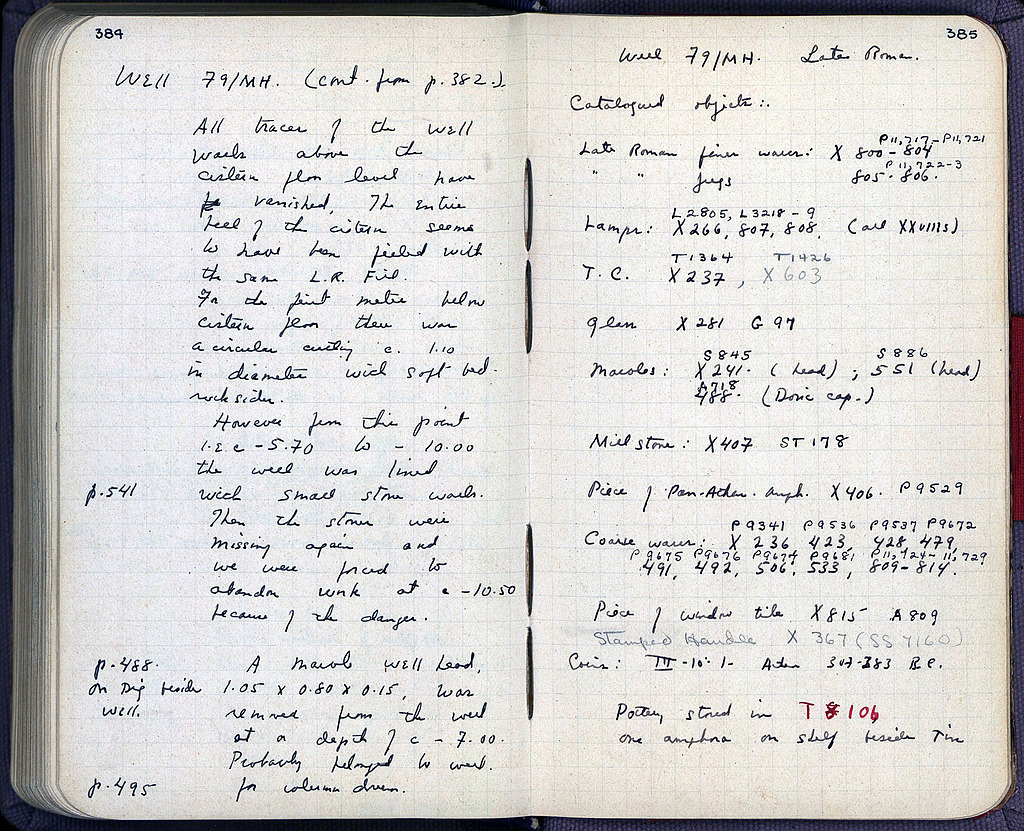 384
WEll 79/MH. (cont. from p. 382.).
All traces of the well
walls above the
cistern floor level have
vanished, The entire
heel of the cistern seems
to have been filled with
the same L.R. Fill.
For the first metre below
cistern floor there was
a circular cutting c. 1.10
in diameter with soft bed-
rock sides.
However from this point
I.E. c - 5.70 to - 10.00
the well was lined
p. 541 with small stone walls.
Then the stones were
missing again and
we were forced to
abandon work at c - 10.50
because of the danger.
p. 488. A marble well head,
on Dig beside 1.05 x 0.80 x 0.15, was
well. removed from the well
at a depth of c - 7.00.
Probably belonged to well.
p. 495 for column drum.
385
Well 79/MH. Late Roman.
Catalogued objects:.
P11,717 - P11,721
Late Roman finer wares: X 800 - 804
P11,722-3
" " jugs 805. 806.
L2805, L3218 - 9
Lamps: X 266, 807, 808. (all XXVIIIs)
T1364 T1426
T.C. X 237, X 603
Glass X 281 G 97
S 845 S 886
Marbles: X 241. (head); 551 (head)
A718
488. (Doric cap.)
Millstone: X407 ST 178
Piece of Pan-Athen. amph. X 406. P9529
P9341 P9536 P9537 P9672
Coarse wares: X 236, 423, 428, 479,
P9675 P9676 P9674 P9681 P11,724 - 11,729
491, 492, 506, 533, 809 - 814.
Piece of window tile X 815 A 809
Stamped Handle X 367 (SS 7160)
Coins: III - 10 - 1 - Athen 307-283 B.C.
Pottery stored in T 106
one amphora on shelf beside Tin